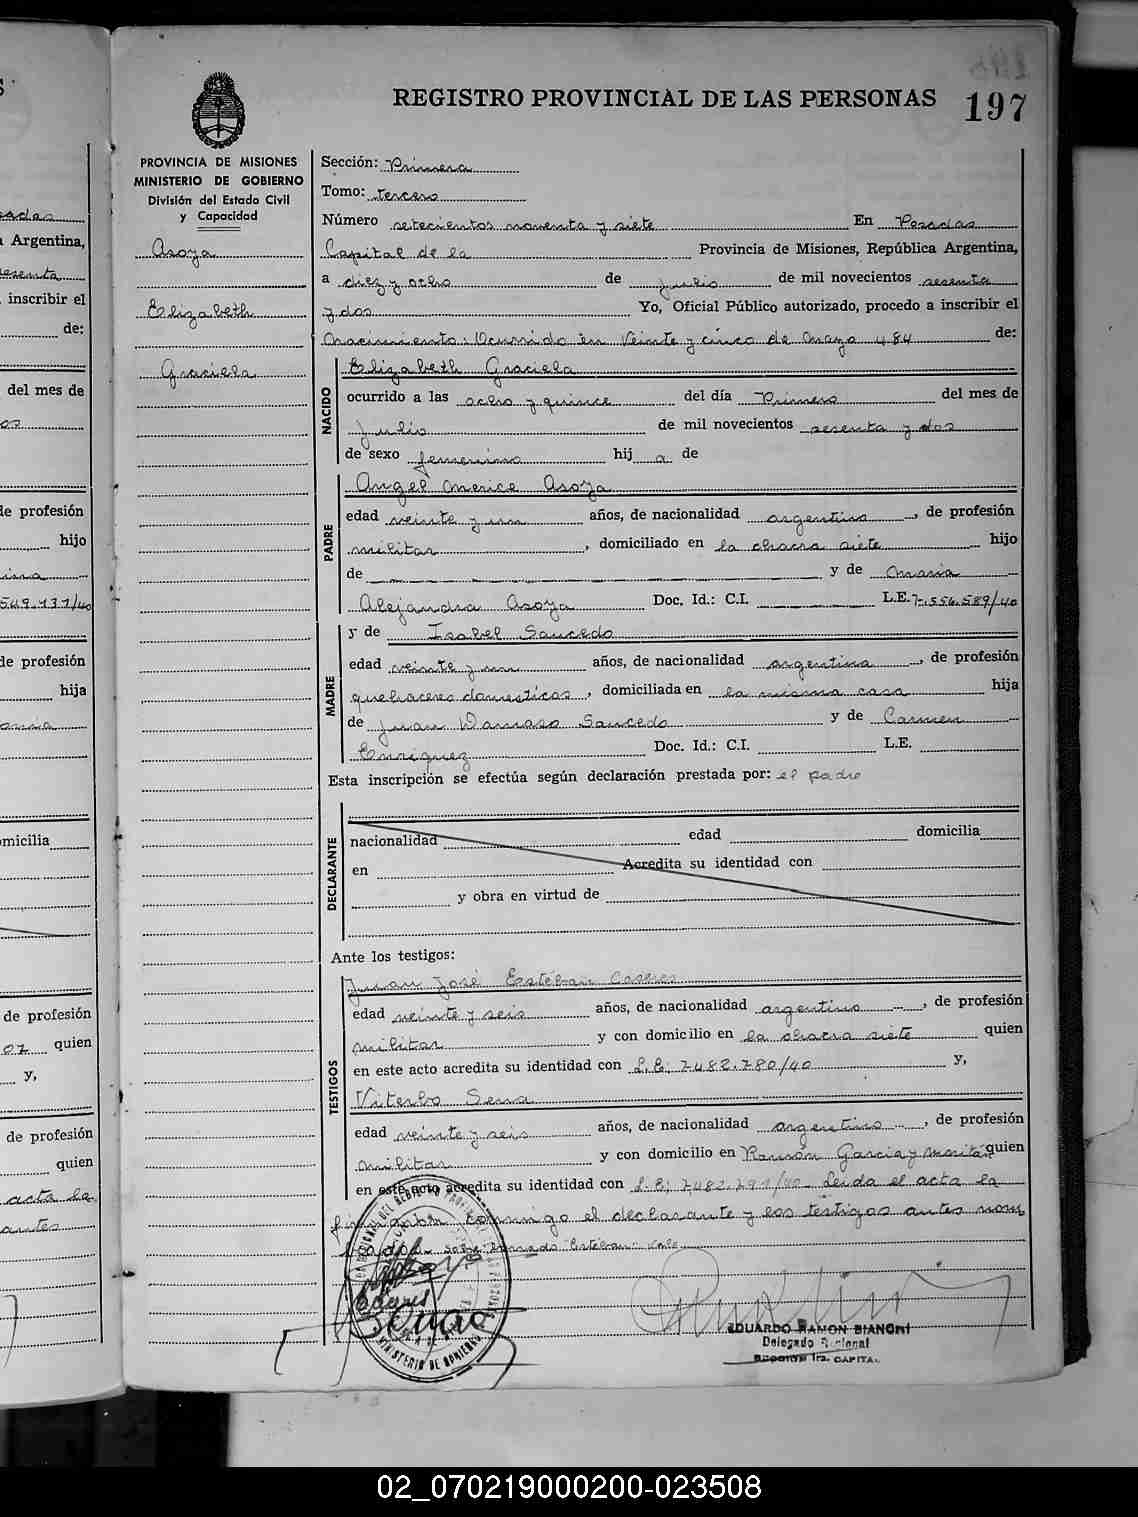 REGISTRO PROVINCIAL DE LAS PERSONAS
197
PROVINCIA DE MISIONES
MINISTERIO DE GOBIERNO
División del Estado Civil
y Capacidad
Asoya
Elizabeth
Graciela
Sección: Primera
Tomo: tercero
Número setecientos noventa y siete En Posadas
Capital de la Provincia de Misiones, República Argentina,
a diez y ocho de julio de mil novecientos sesenta
y dos Yo, Oficial Público autorizado, procedo a inscribir el
nacimiento: Ocurrido en Veinte y cinco de mayo 484 de:
NACIDO
Elizabeth Graciela
ocurrido a las ocho y quince del día Primero del mes de
julio de mil novecientos sesenta y dos
de sexo femenino hij a de
PADRE
Angel Asoya
edad veinte y un años, de nacionalidad argentino, de profesión
militar, domiciliado en la chacra siete hijo
de y de Maria
Alejandra Asoya Doc. Id.: C.I. L.E. 7.556.589/40
MADRE
y de Isabel Saucedo
edad veinte y un años, de nacionalidad argentina, de profesión
quehaceres domesticos, domiciliada en la misma casa hija
de Juan Damaso Saucedo y de Carmen
Enriquez Doc. Id.: C.I. L.E.
Esta inscripción se efectúa según declaración prestada por: el padre
DECLARANTE
nacionalidad edad domicilia
en Acredita su identidad con
y obra en virtud de
Ante los testigos:
TESTIGOS
Juan José Esteban
edad veinte y seis años, de nacionalidad argentino, de profesión
militar y con domicilio en la chacra siete quien
en este acto acredita su identidad con L.E. 7482.780/40 y,
Viterbo Sena
edad veinte y seis años, de nacionalidad argentino, de profesión
militar y con domicilio en Ramón Garcia y quien
en este acto acredita su identidad con L.E. 7.482.791/40. Leida el acta la
firmaron conmigo el declarante y los testigos antes nom
brados. Sobre "Esteban" vale
EDUARDO RAMON BIANCHI
Delegado Regional
REGION 1ra. CAPITAL
MINISTERIO DE GOBIERNO
02_070219000200-023508